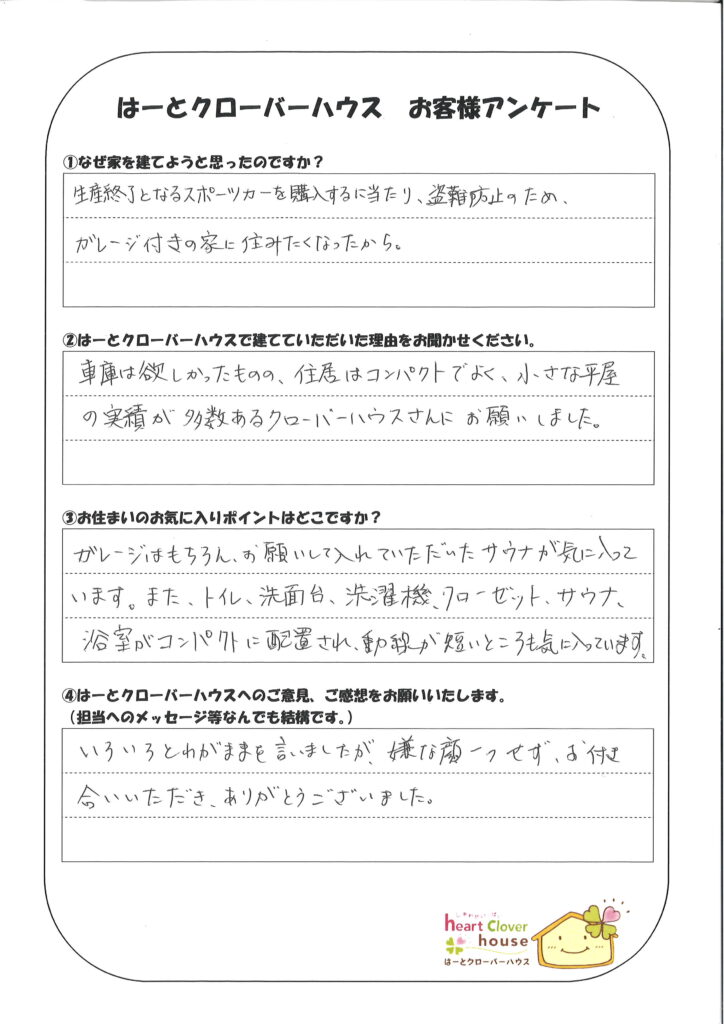 はーとクローバーハウス　お客様アンケート
①なぜ家を建てようと思ったのですか？
生産終了となるスポーツカーを購入するに当たり、盗難防止のため、
ガレージ付きの家に住みたくなったから。
②はーとクローバーハウスで建てていただいた理由をお聞かせください。
車庫は欲しかったものの、住居はコンパクトでよく、小さな平屋
の実績が多数あるクローバーハウスさんにお願いしました。
③お住まいのお気に入りポイントはどこですか？
ガレージはもちろん、お願いして入れていただいたサウナが気に入って
います。また、トイレ、洗面台、洗濯機、クローゼット、サウナ、
浴室がコンパクトに配置され、動線が短いところも気に入っています。
④はーとクローバーハウスへのご意見、ご感想をお願いいたします。
（担当へのメッセージ等なんでも結構です。）
いろいろとわがままを言いましたが、嫌な顔一つせず、お付き
合いいただき、ありがとうございました。
heart Clover
house
はーとクローバーハウス